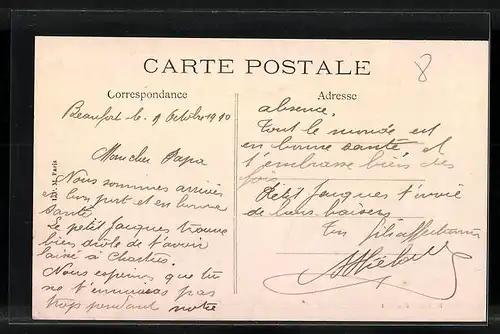 CARTE POSTALE
Correspondance
Adresse
8
Beaufort le 9 Octobre 1910
Mon cher Papa
Nous sommes arrivés
à bon port et en bonne
santé
Le petit Jacques trouve
bien drôle de t'avoir
laissé à Chartres.
Nous espérons que tu
ne t'ennuies pas
trop pendant notre
absence.
Tout le monde est
en bonne santé et
t'embrasse bien des
fois
Petit Jacques t'envoie
de bons baisers
Ton fils affectionné
LD. M. Paris